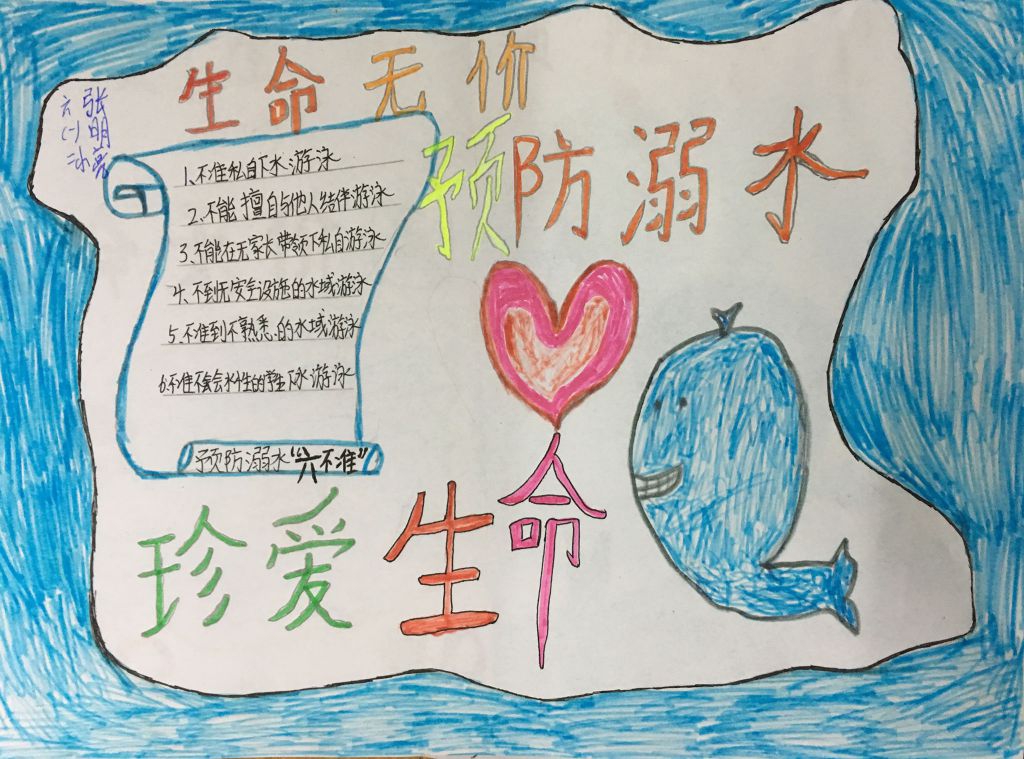 生命无价
六(一) 张明亮
预防溺水
1、不准私自下水游泳
2、不能擅自与他人结伴游泳
3、不能在无家长带领下私自游泳
4、不到无安全设施的水域游泳
5、不准到不熟悉的水域游泳
6.不准不会水性的学生下水游泳
预防溺水“六不准”
珍爱生命